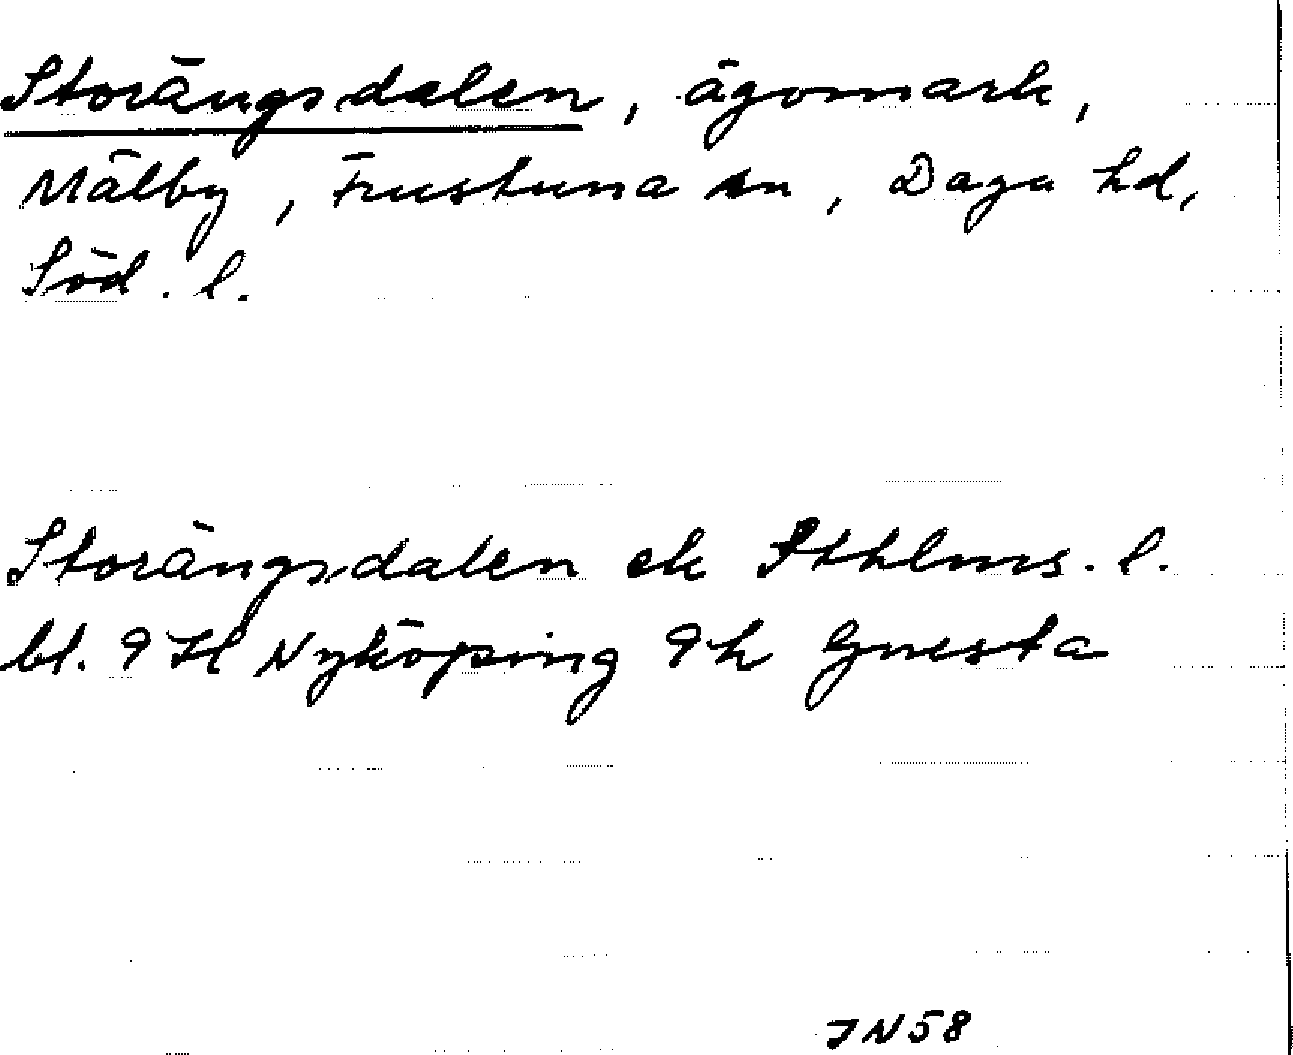 Storängsdalen, ägomark,
Mälby, Frustuna sn, Daga hd,
Söd. l.
Storängsdalen ek Sthlms. l.
bl. 9 H Nyköping 9 h Gnesta
JN58